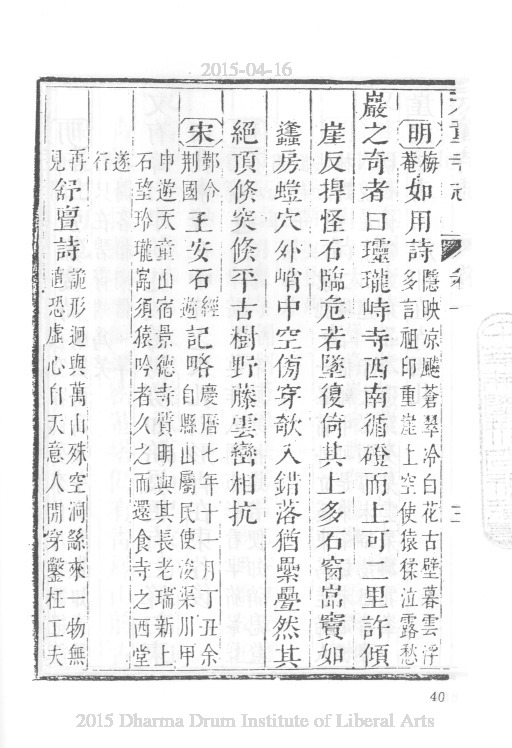 2015-04-16
天童寺志
明梅菴如用詩隱映凉飈蒼翠冷白花古壁暮雲浮
多言祖印重崖上空使猿猱泣露愁
巖之奇者曰玲瓏峙寺西南循磴而上可二里許傾
崖反捍怪石臨危若墜復倚其上多石窗嵓竇如
蠭房螘穴外峭中空傍穿欹入錯落猶纍疊然其
絕頂倏突倏平古樹野藤雲巒相抗
宋鄞令荆國王安石經遊記略慶曆七年十一月丁丑余
自縣出屬民使浚渠川甲
申遊天童山宿景德寺質明與其長老瑞新上
石望玲瓏嵓須猿吟者久之而還食寺之西堂
遂
行
再見舒亶詩詭形迥與萬山殊空洞繇來一物無
遺恐虛心自天意人間穿鑿枉工夫
40
2015 Dharma Drum Institute of Liberal Arts